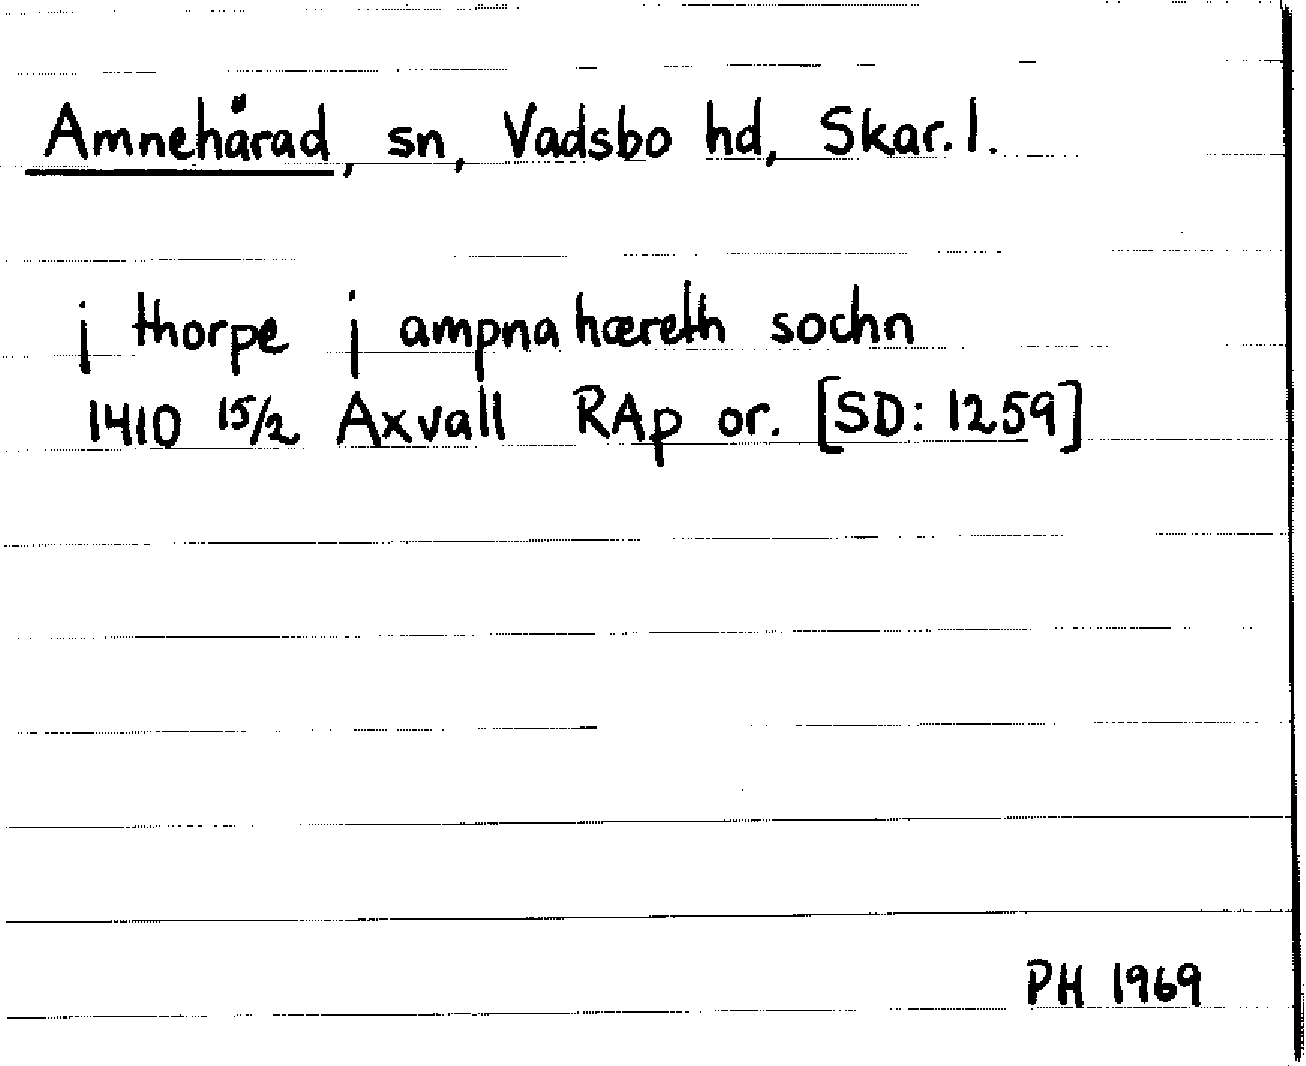 Amnehärad, sn, Vadsbo hd, Skar. l.
j thorpe j ampna hæreth sochn
1410 15/2 Axvall RAp or. [SD: 1259]
PH 1969